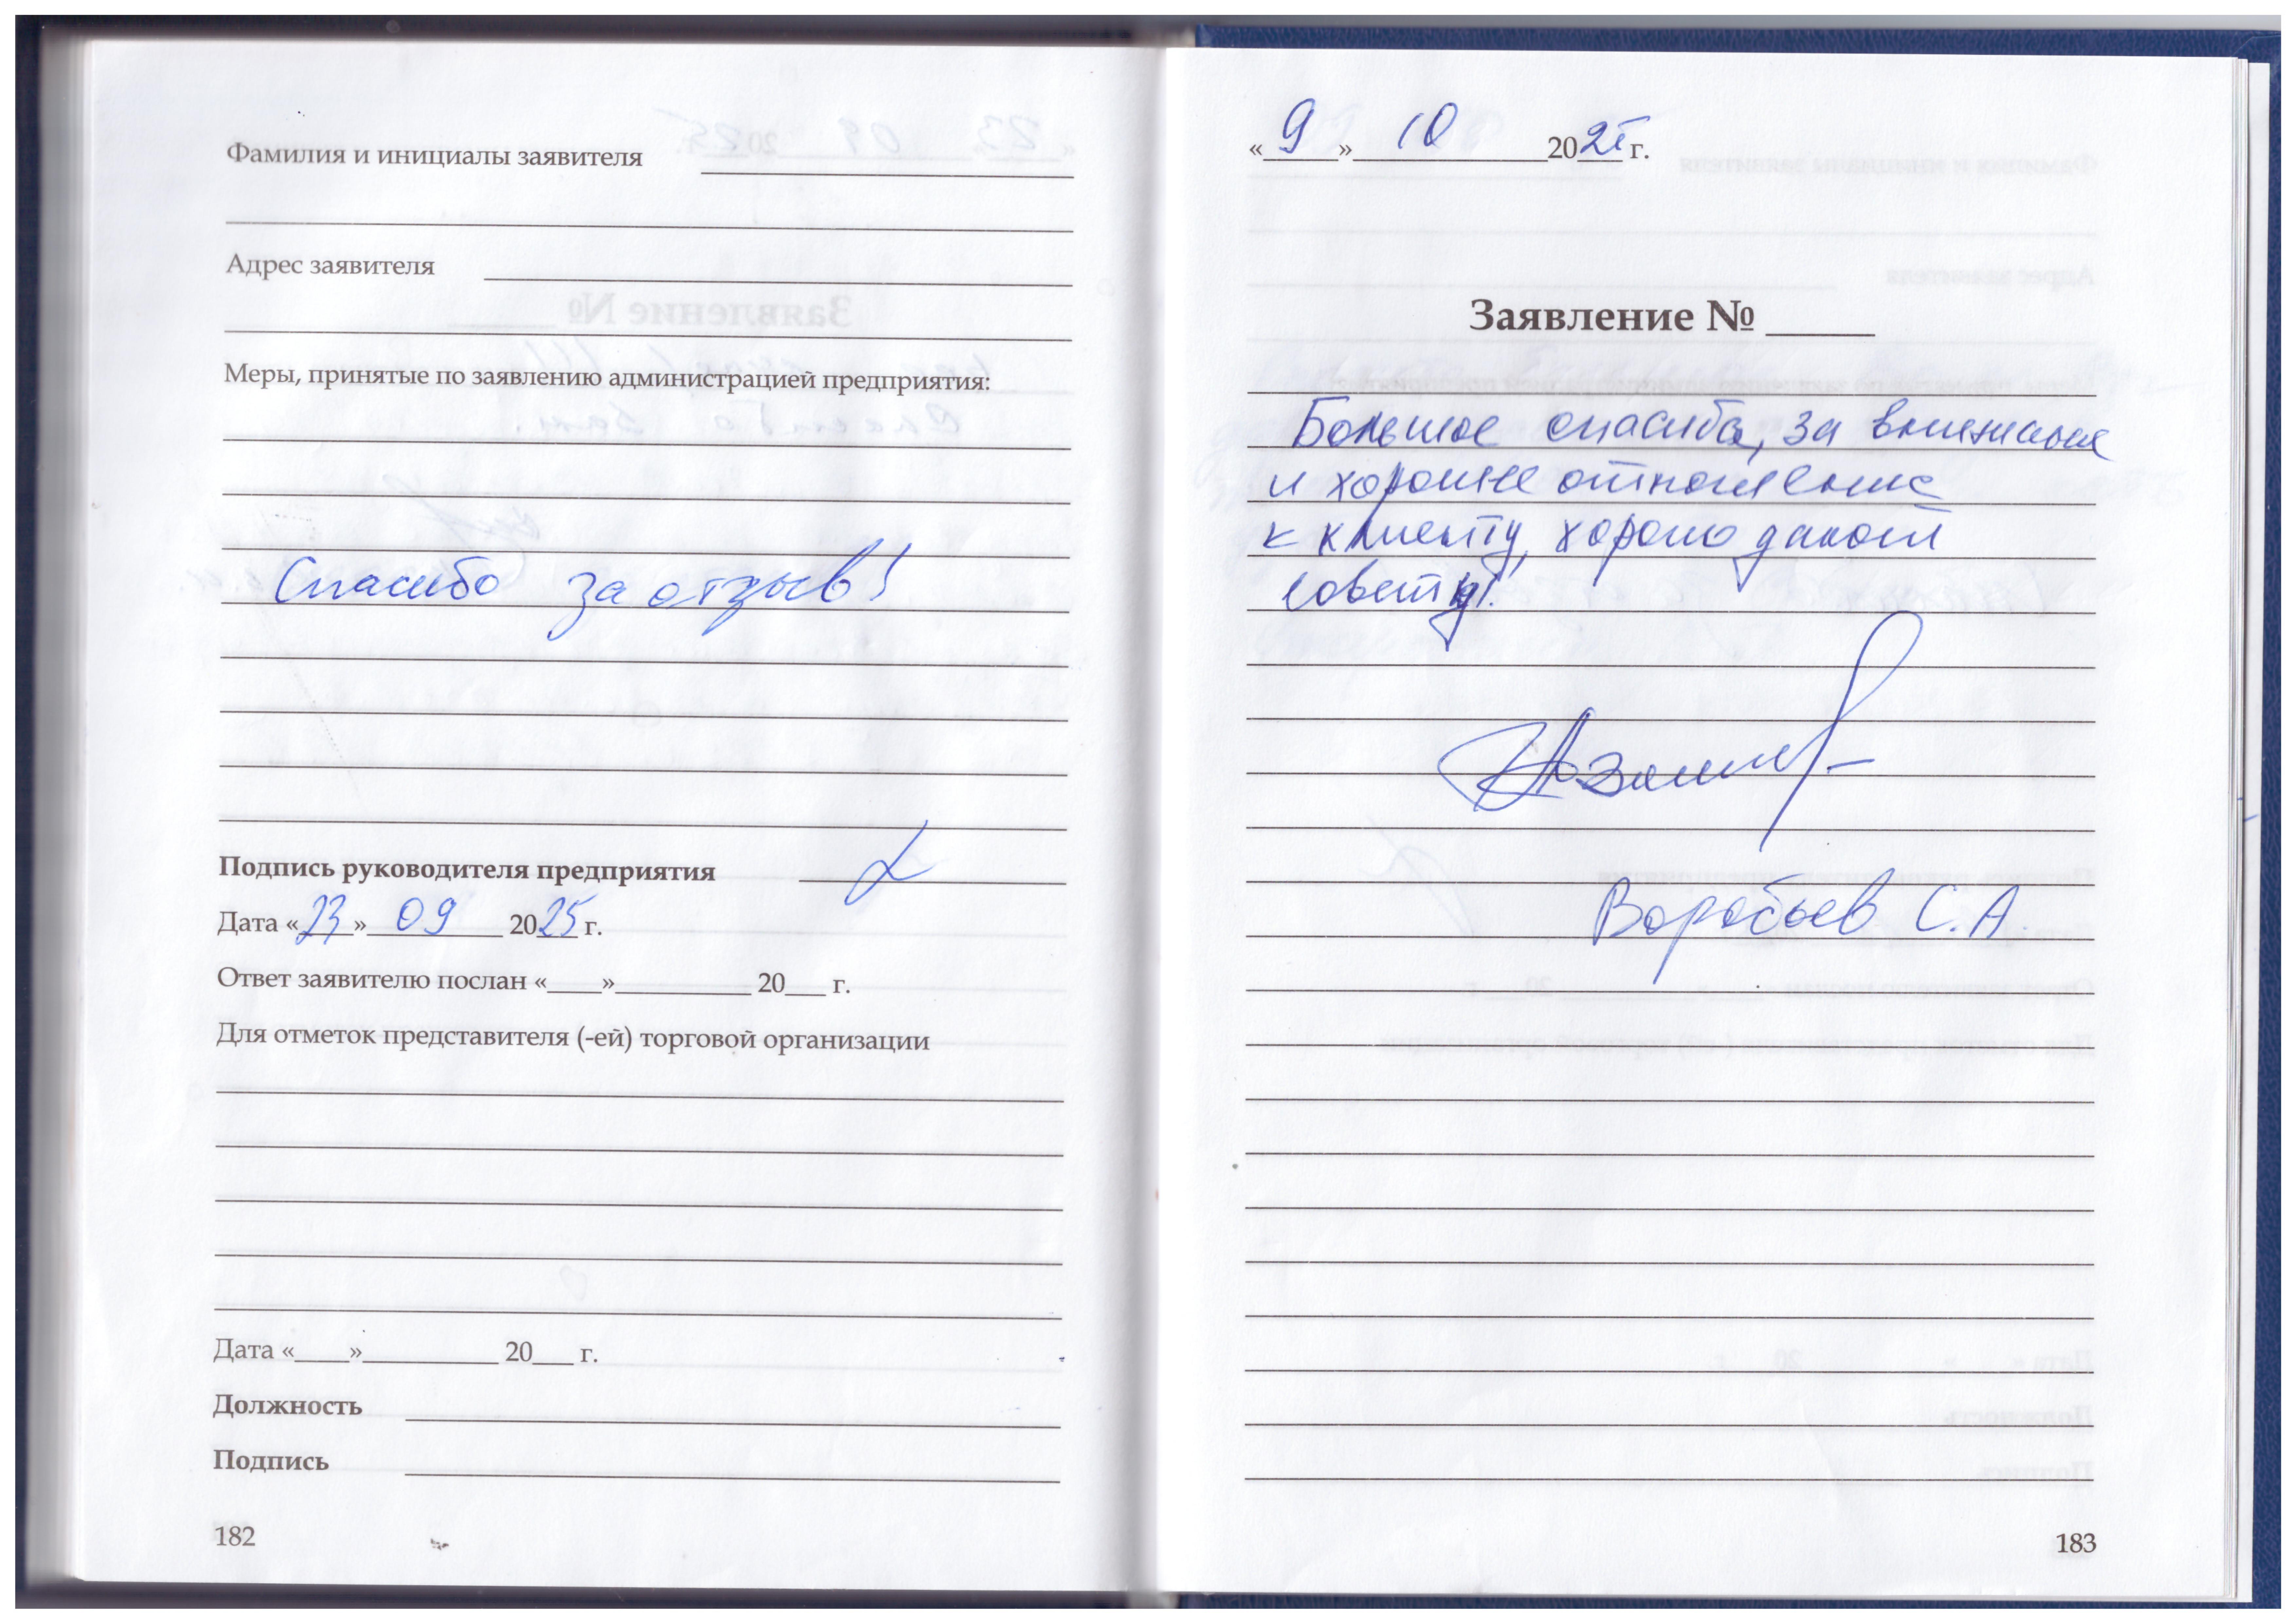 Фамилия и инициалы заявителя
Адрес заявителя
Меры, принятые по заявлению администрацией предприятия:
Спасибо за отзыв!
Подпись руководителя предприятия
Дата «23» 09 2025 г.
Ответ заявителю послан «____»__________ 20___ г.
Для отметок представителя (-ей) торговой организации
Дата «____»__________ 20___ г.
Должность
Подпись
182
«9» 10 2025 г.
Заявление № _____
Большое спасибо, за внимание
и хорошие отношение
к клиенту, хорошо дают
советы.
Воробьев С.А
183